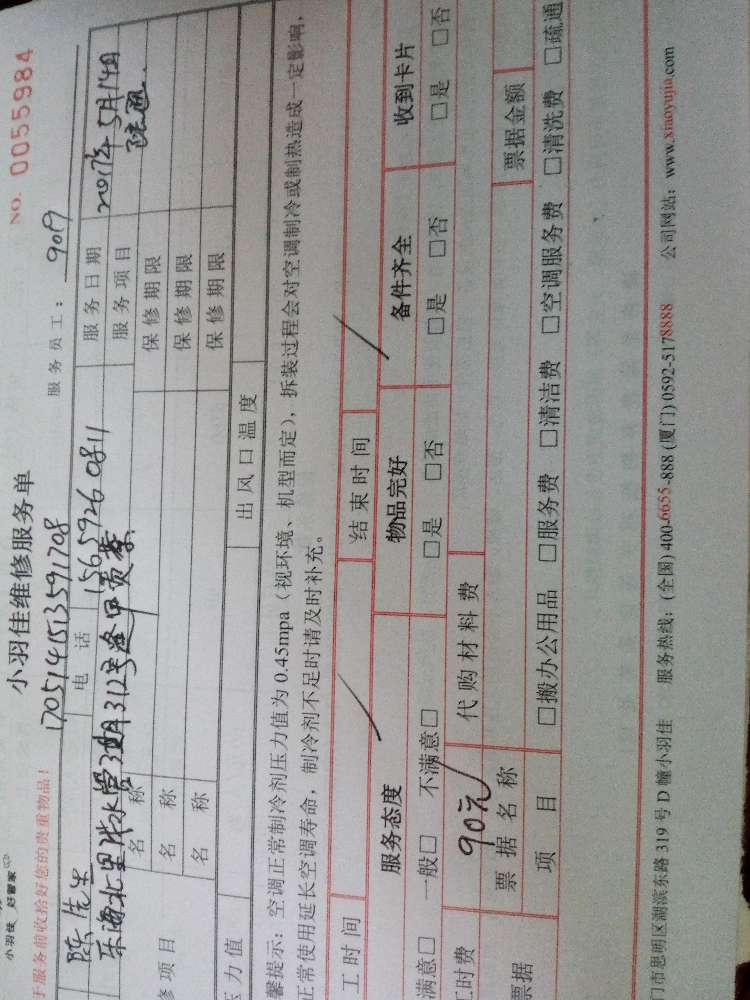 小羽佳 好管家
小羽佳维修服务单
NO. 0055984
于服务前收拾好您的贵重物品！
1705141513591708
服务员工： 9019
陈先生
电话
15659260811
服务日期
2017年5月14日
乐海北里
312号
服务项目
疏通
修项目
名称
保修期限
名称
保修期限
名称
保修期限
压力值
出风口温度
馨提示：空调正常制冷剂压力值为 0.45mpa（视环境、机型而定），拆装过程会对空调制冷或制热造成一定影响，
正常使用延长空调寿命，制冷剂不足时请及时补充。
工时间
结束时间
服务态度
物品完好
备件齐全
收到卡片
满意□ 一般□ 不满意□
□是 □否
□是 □否
□是 □否
工时费
90元
代购材料费
票据
票据名称
票据金额
项目
□搬办公用品 □服务费 □清洁费 □空调服务费 □清洗费 □疏通
门市思明区湖滨东路 319 号 D 幢小羽佳 服务热线：(全国) 400-6655-888 (厦门) 0592-5178888 公司网站：www.xiaoyujia.com